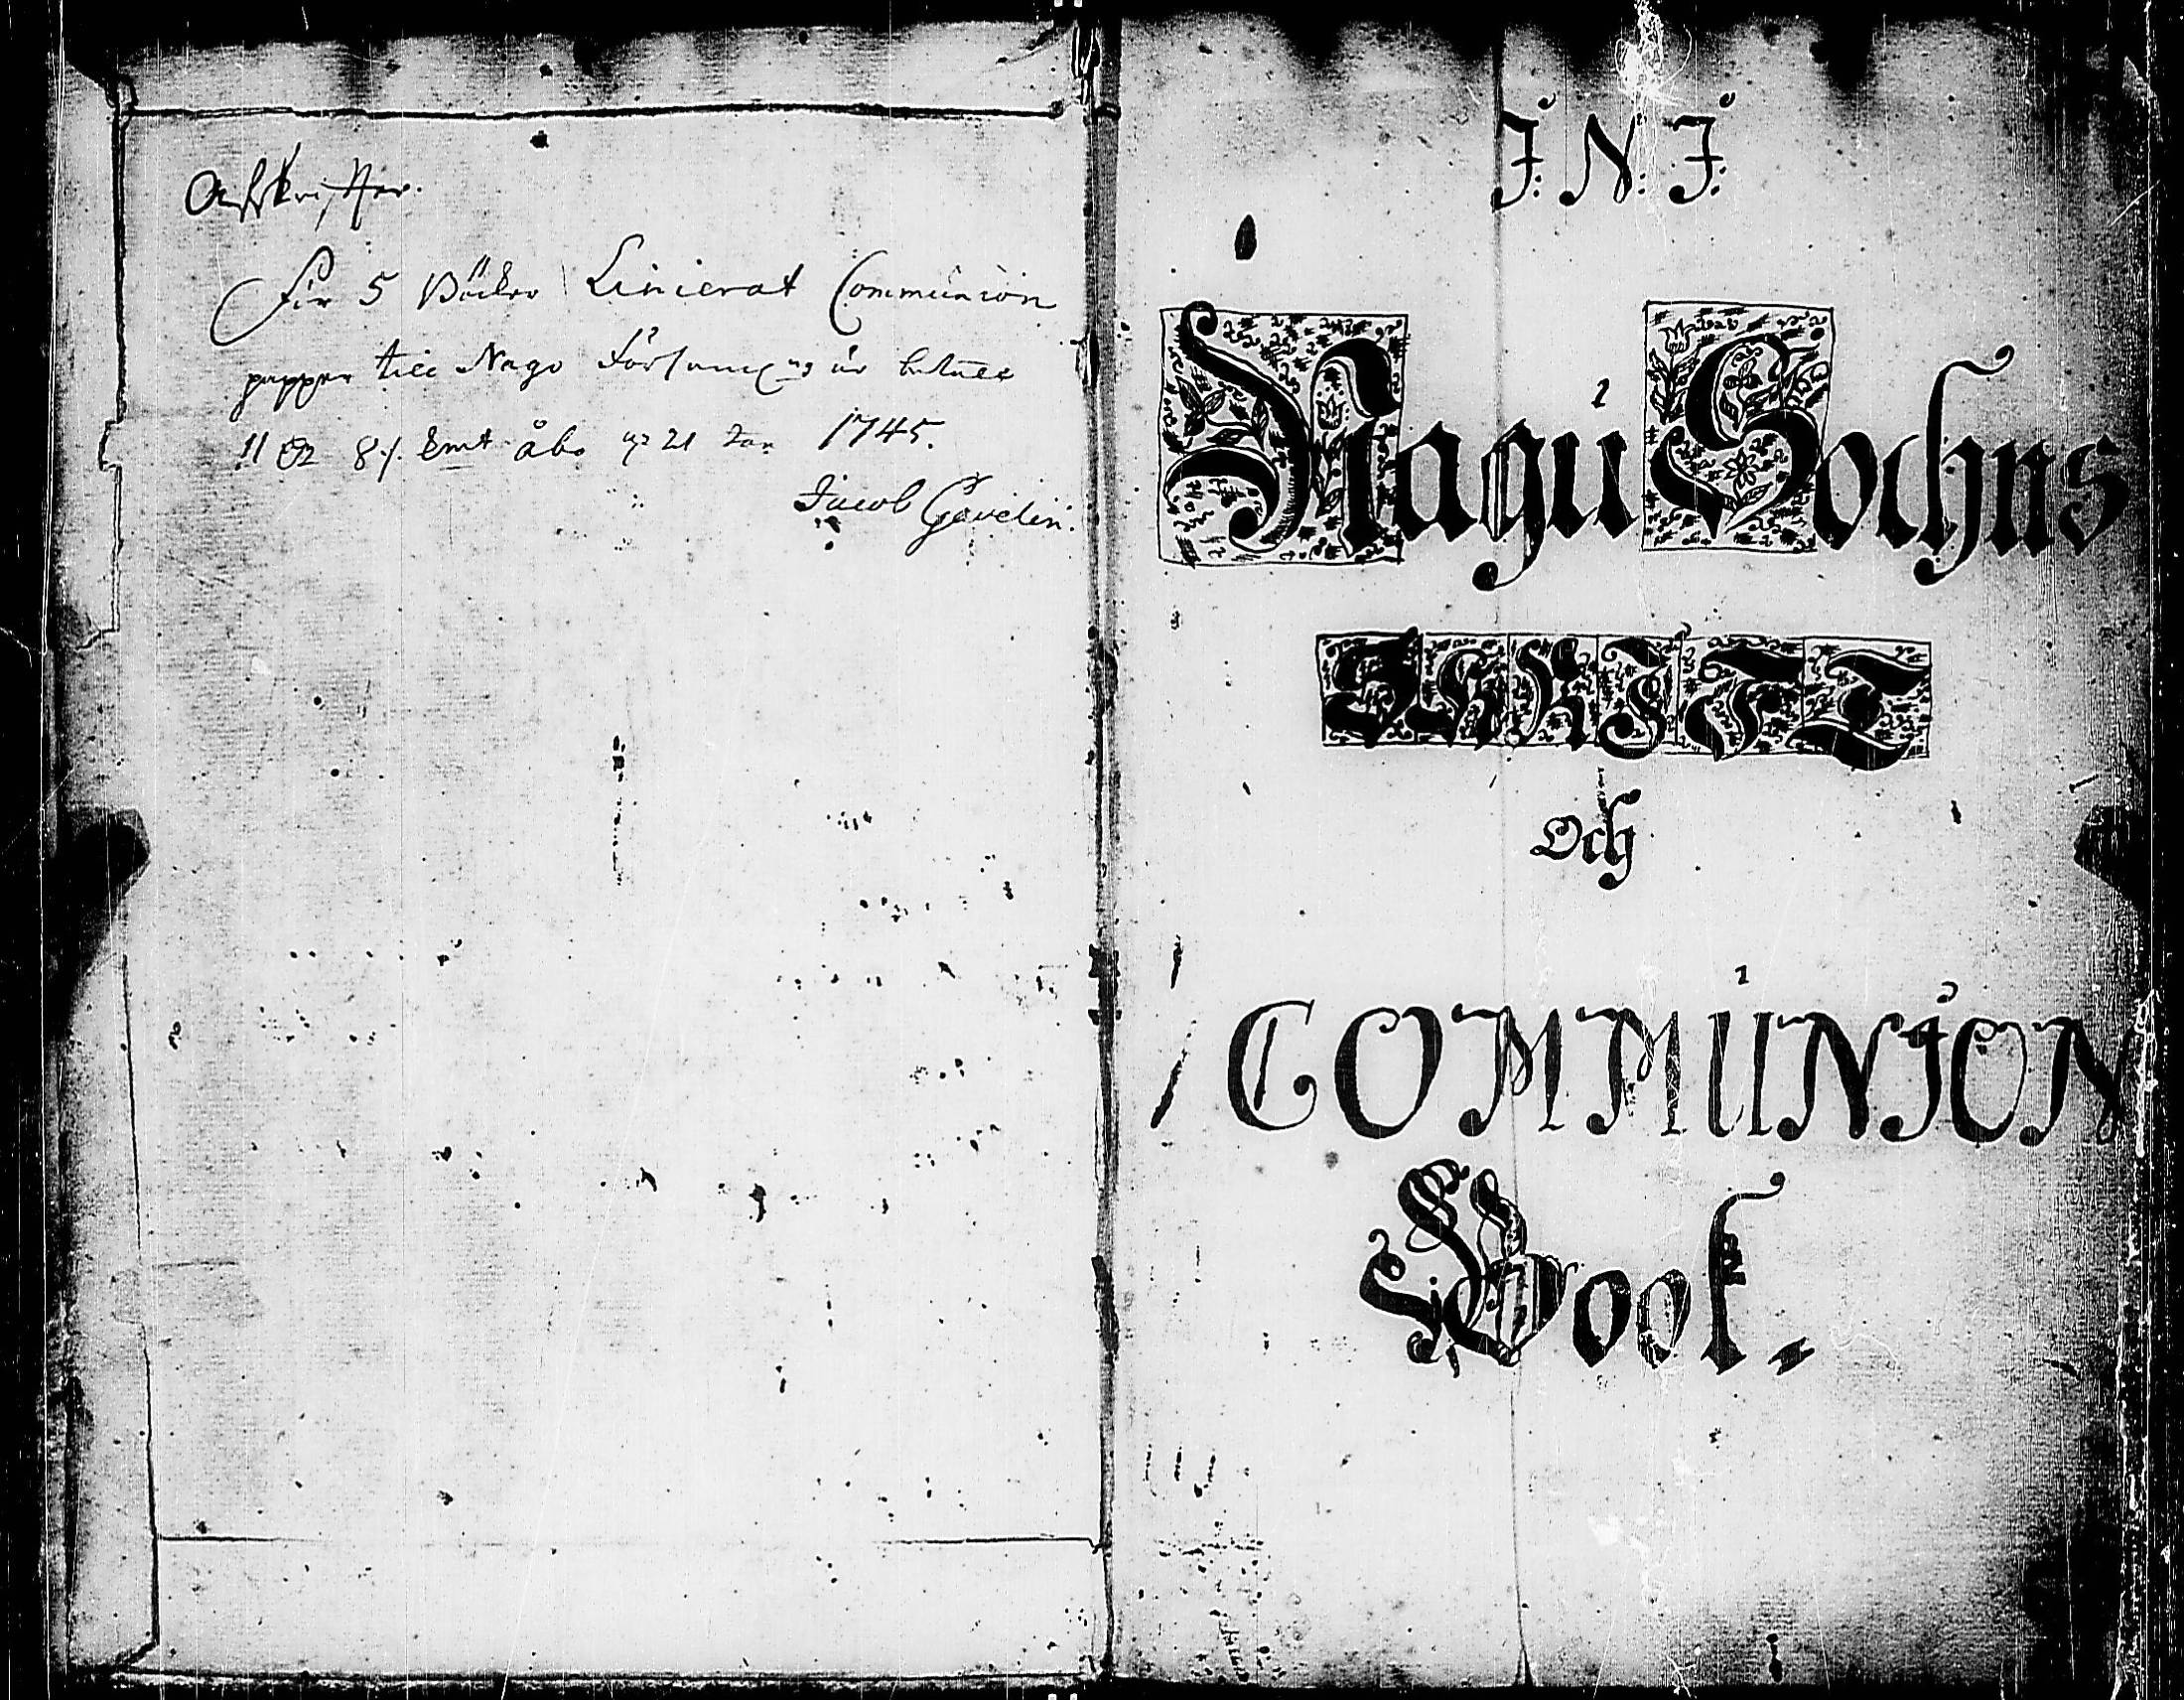 Afskrifter.
För 5 Böcker Linierat Communion
papper till Nago Församl:ng är betalt
11 8 Åbo 21 Jan 1745.
Jacob Gavelin.
J: N: J:
Nagu Sochns
SKRIFT
Och
COMMUNION
Book.